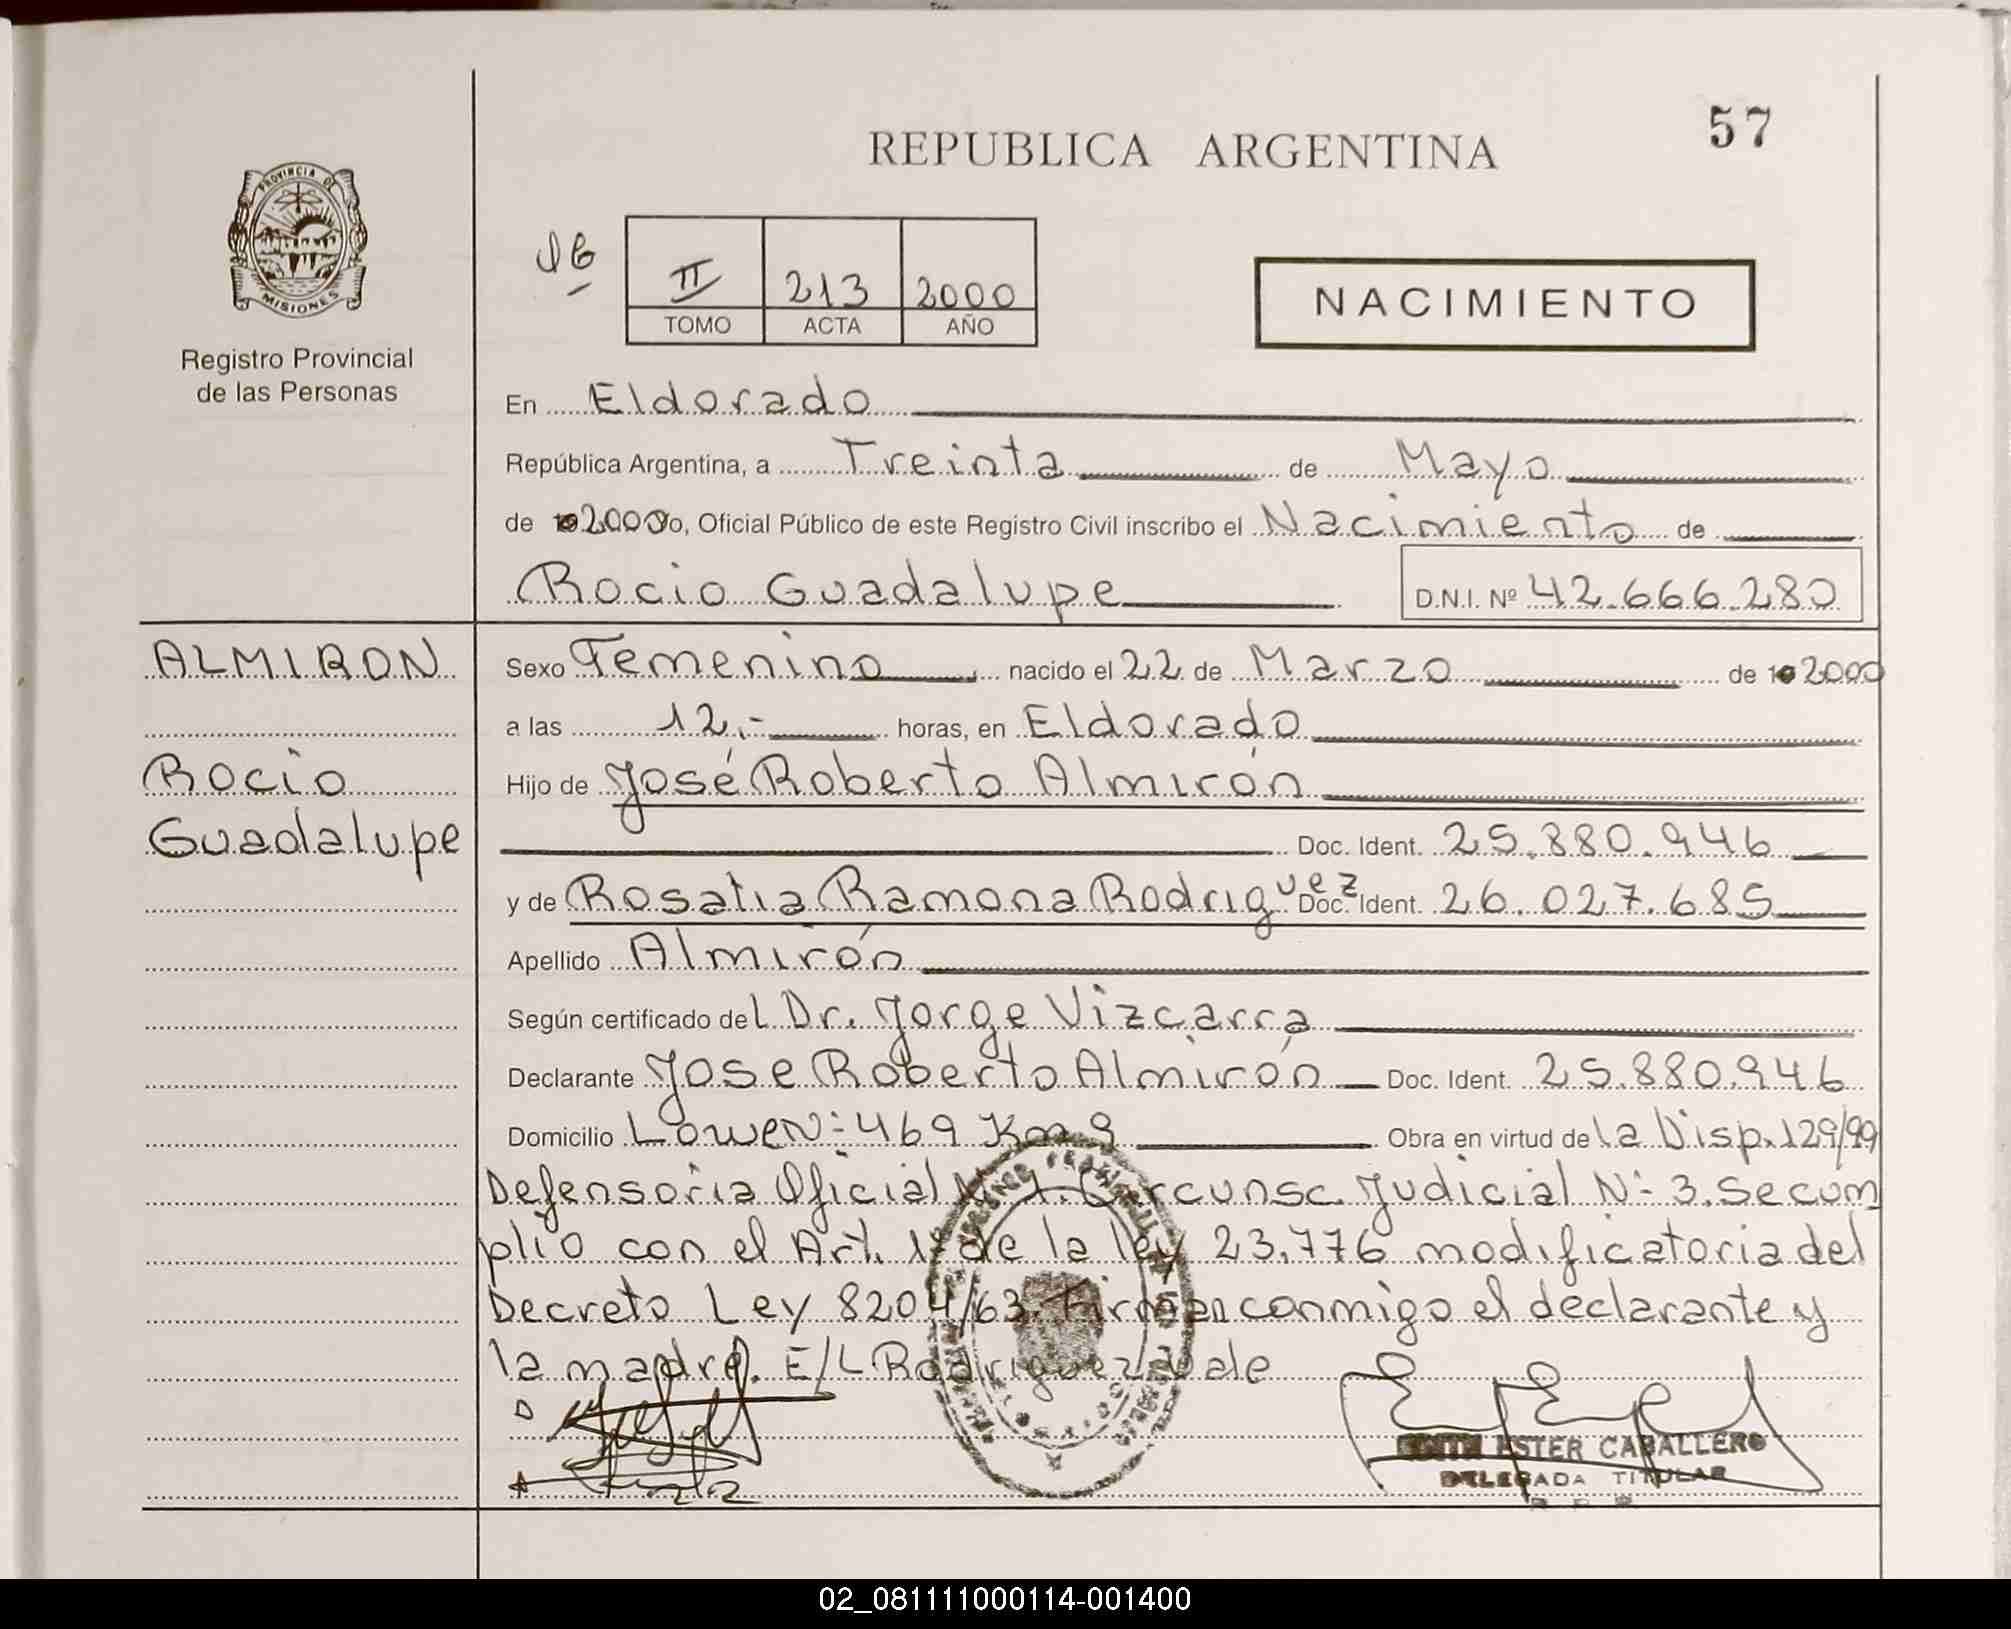 57
REPUBLICA ARGENTINA
PROVINCIA DE
MISIONES
Registro Provincial
de las Personas
II 213 2000
TOMO ACTA AÑO
NACIMIENTO
En Eldorado
República Argentina, a Treinta de Mayo
de 2000 Yo, Oficial Público de este Registro Civil inscribo el Nacimiento de
Rocio Guadalupe D.N.I. Nº 42.666.280
ALMIRON
Rocio
Guadalupe
Sexo Femenino nacido el 22 de Marzo de 2000
a las 12.- horas, en Eldorado
Hijo de José Roberto Almirón
Doc. Ident. 25.880.946
y de Rosalia Ramona Rodriguez Doc. Ident. 26.027.685
Apellido Almirón
Según certificado del Dr. Jorge Vizcarra
Declarante Jose Roberto Almirón Doc. Ident. 25.880.946
Domicilio Lowen: 469 Km 9 Obra en virtud de la Disp. 129/99
Defensoria Oficial Nº 1. Circunsc. Judicial Nº 3. Se cum
plio con el Art. 1º de la ley 23.776 modificatoria del
Decreto Ley 8204/63. Firman conmigo el declarante y
la madre. E/L Rodriguez vale
ESTER CABALLERO
DELEGADA TITULAR
02_081111000114-001400